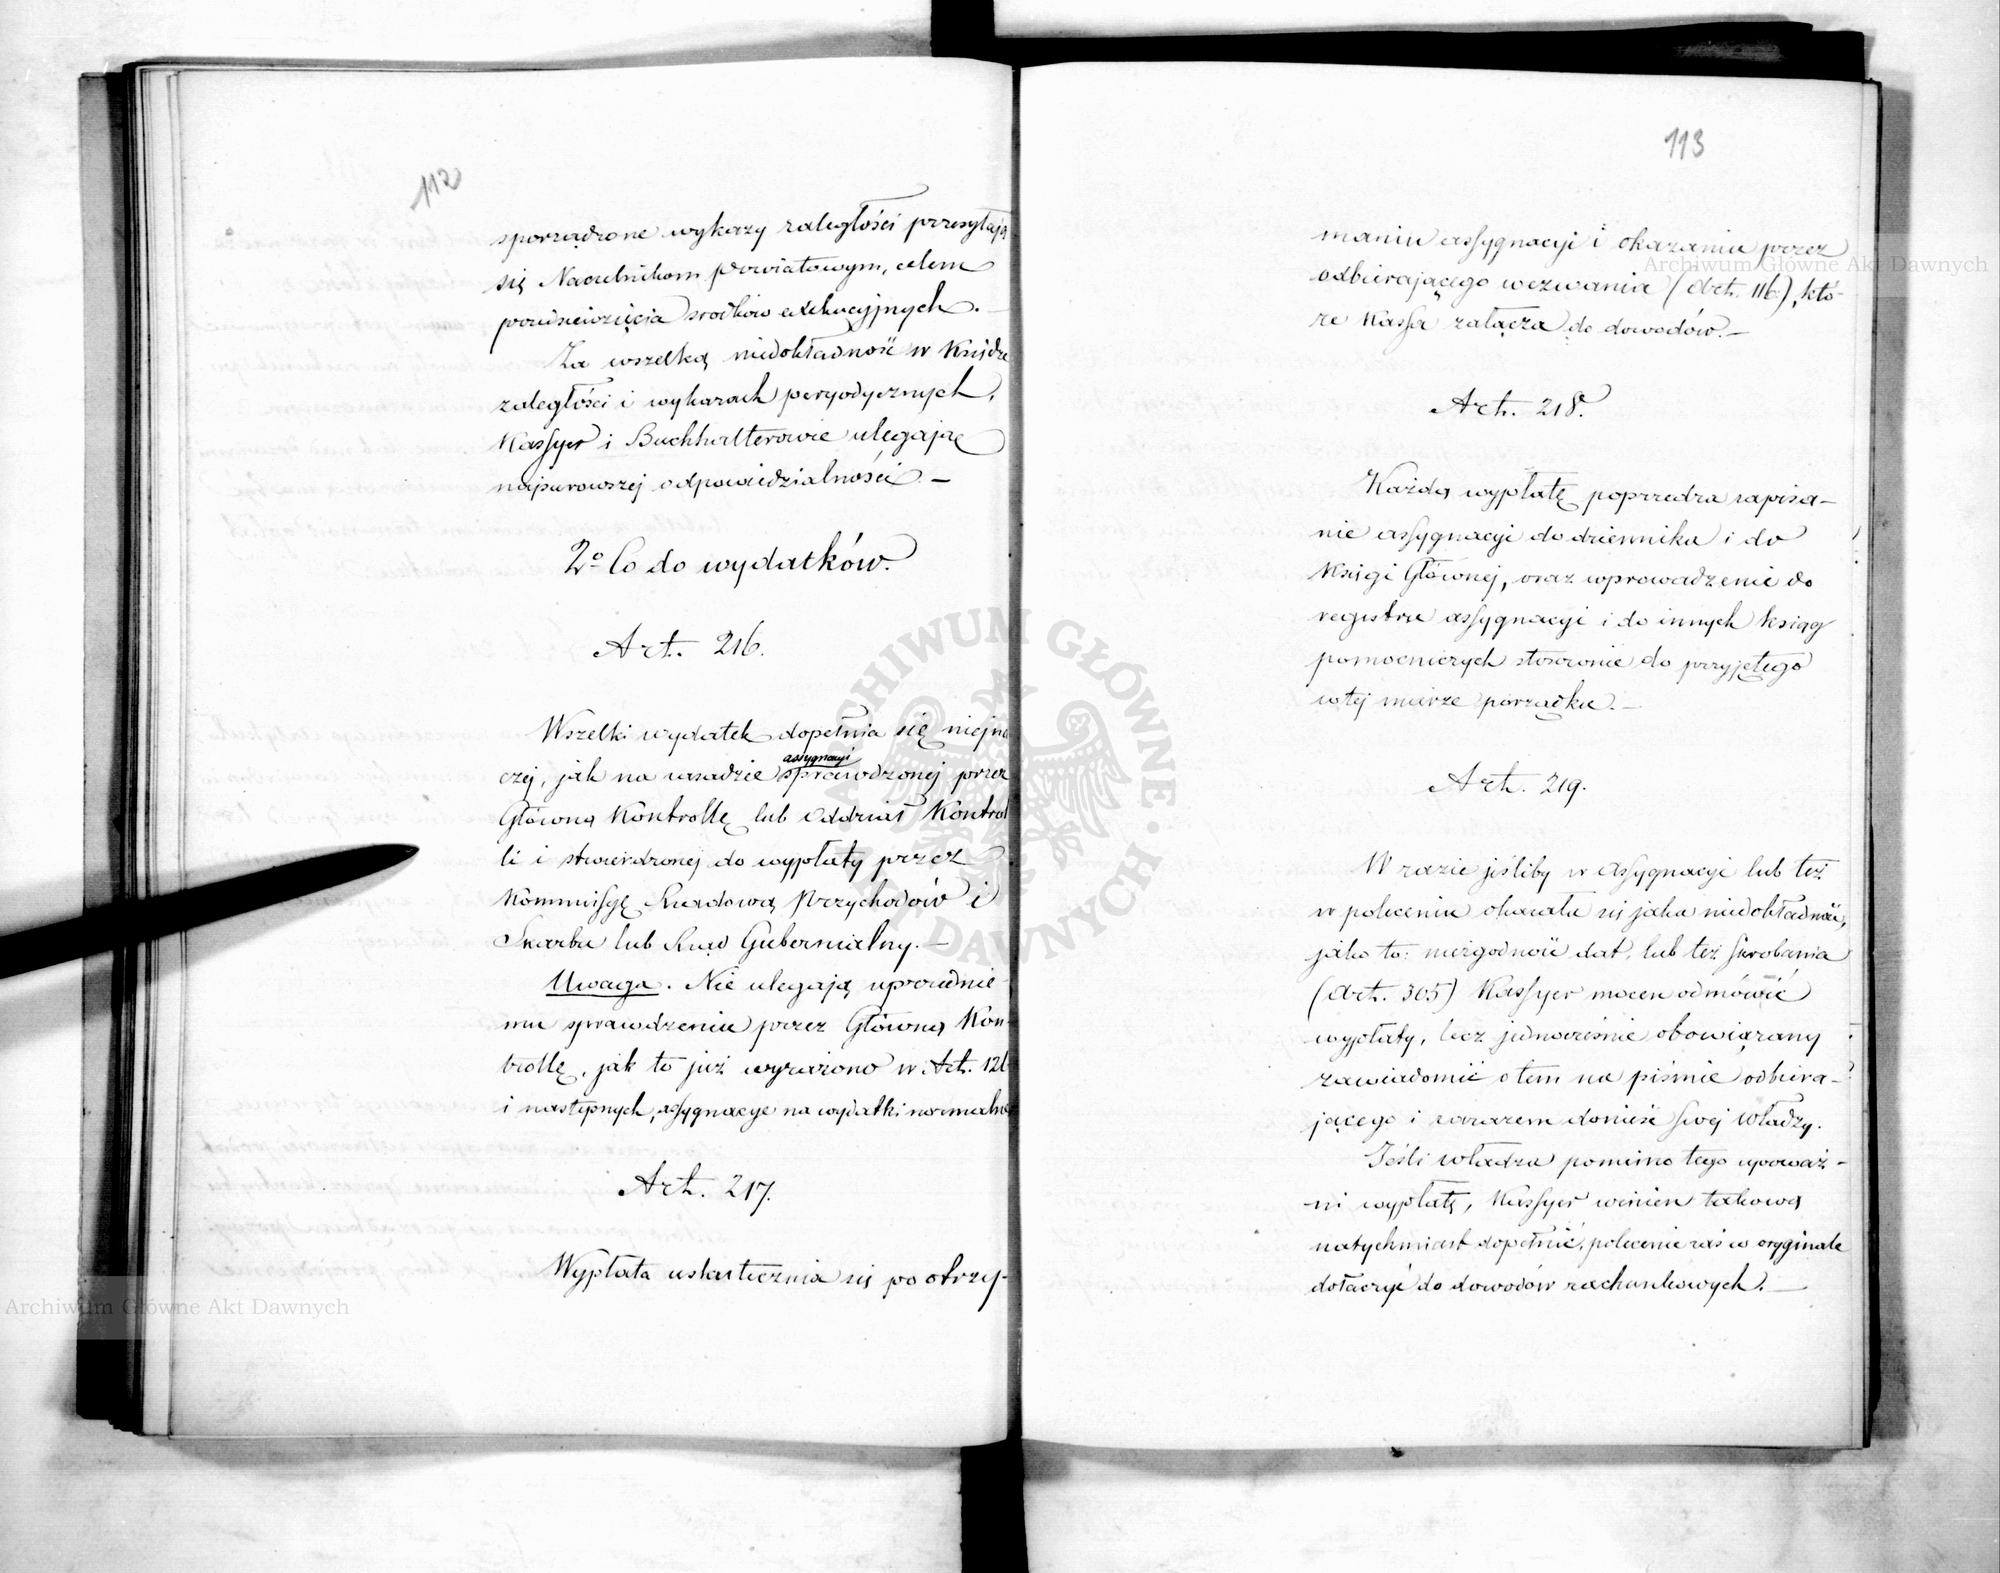 112
sporządzone wykazy zaległości przesyłają
się Naczelnikom Powiatowym, celem
przedsięwzięcia środków exekucyjnych. —
Za wszelką niedokładność w Księdze
zaległości i wykazach peryodycznych,
Kassyer i Buchhalterowie ulegają
najsurowszej odpowiedzialności. —
2° Co do wydatków.
Art. 216.
Wszelki wydatek dopełnia się niejna
assygnacyi
czej, jak na zasadzie sprawdzonej przez
Główną Kontrollę lub Oddział Kontrol
li i stwierdzonej do wypłaty przez
Kommissyę Rządową Przychodów i
Skarbu lub Rząd Gubernialny. —
Uwaga. Nie ulegają uprzednie-
mu sprawdzeniu przez Główną Kon-
trollę, jak to już wyrażono w Art. 126
i następnych, assygnacye na wydatki normalne
Art. 217.
Wypłata uskutecznia się po otrzy-
113
maniu assygnacyi i okazaniu przez
odbierającego wezwania (Art. 116.), któ-
re Kassa załącza do dowodów. —
Art. 218.
Każdą wypłatę poprzedza zapisa-
nie assygnacyi do dziennika i do
Księgi Głównej, oraz wprowadzenie do
registru assygnacyi i do innych ksiąg
pomocniczych stosownie do przyjętego
w tej mierze porządku. —
Art. 219.
W razie jeśliby w assygnacyi lub też
w poleceniu okazała się jaka niedokładność,
jako to: niezgodność dat, lub też skrobania
(Art. 305) Kassyer mocen odmówić
wypłaty, lecz jednocześnie obowiązany
zawiadomić o tem na piśmie odbiera-
jącego i zarazem donieść swej Władzy.
Jeśli władza pomimo tego upoważ-
ni wypłatę, Kassyer winien takową
natychmiast dopełnić, polecenie zaś w oryginale
dołączyć do dowodów rachunkowych. —
ARCHIWUM GŁÓWNE AKT DAWNYCH
Archiwum Główne Akt Dawnych
Archiwum Główne Akt Dawnych